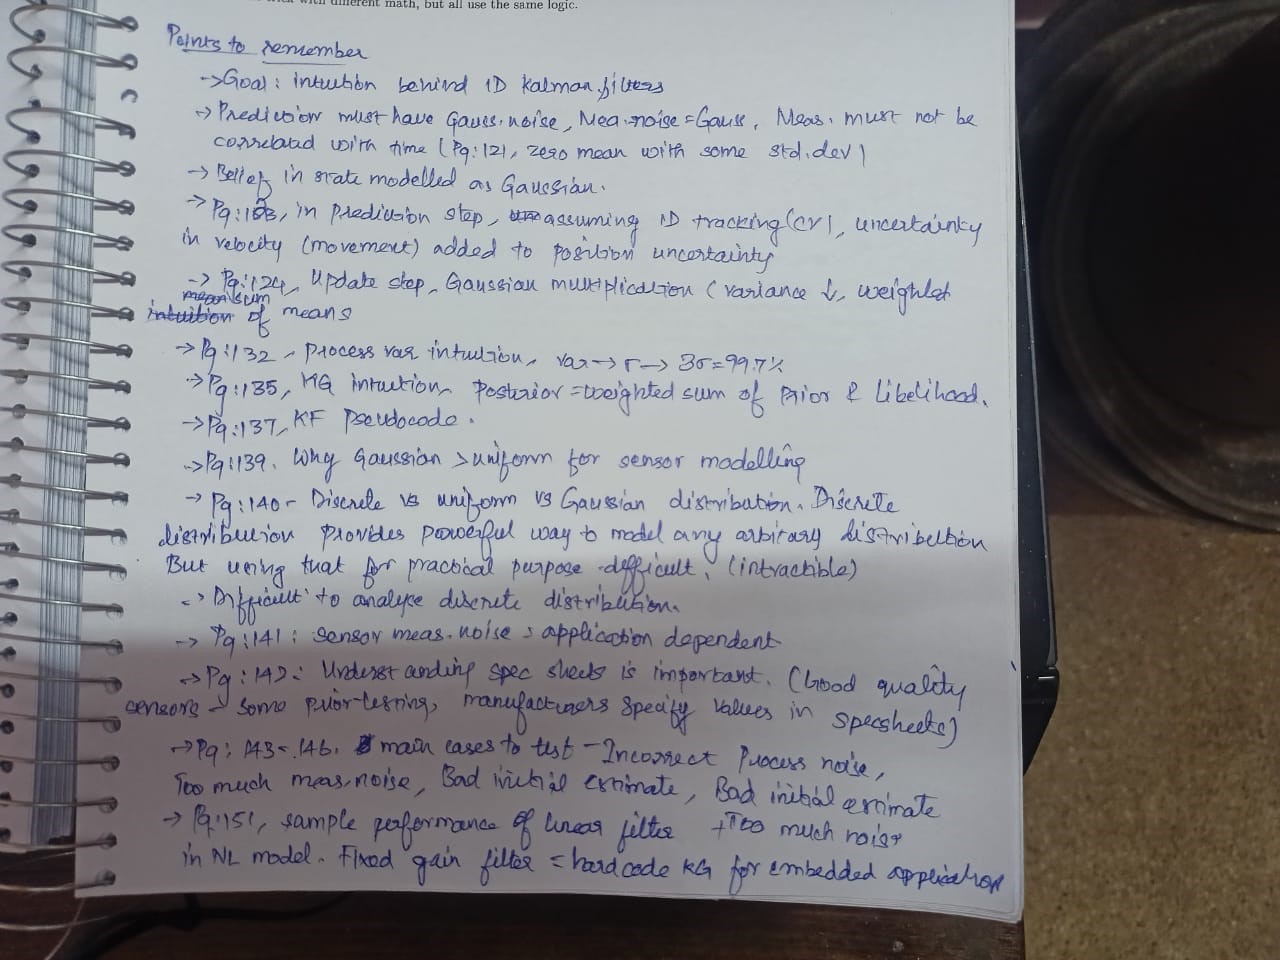 with different math, but all use the same logic.
Points to remember
→ Goal: intuition behind 1D Kalman filters
→ Prediction must have Gauss. noise, Mea. noise = Gauss, Meas. must not be
correlated with time (Pg:121, zero mean with some std.dev)
→ Belief in state modelled as Gaussian.
→ Pg: in prediction step, assuming 1D tracking (CV), uncertainty
in velocity (movement) added to position uncertainty
→ Pg:124, Update step, Gaussian multiplication (variance ↓, weighted
sum
of means
→ Pg:132, process var intuition, var → σ → 3σ = 99.7%
→ Pg:135, KG intution, Posterior = weighted sum of Prior & Likelihood.
→ Pg:137, KF Pseudocode.
→ Pg:139. Why Gaussian > uniform for sensor modelling
→ Pg:140 - Discrete vs uniform vs Gaussian distribution. Discrete
distribution provides powerful way to model any arbitrary distribution
But using that for practical purpose difficult. (intractible)
→ Difficult to analyse discrete distribution.
→ Pg:141: sensor meas. noise: application dependent
→ Pg:142: Understanding spec sheets is important. (Good quality
sensors - some prior testing, manufacturers specify values in specsheets)
→ Pg: 143-146. main cases to test - Incorrect Process noise,
Too much meas. noise, Bad initial estimate, Bad initial estimate
+ Too much noise
→ Pg:151, sample performance of linear filter
in NL model. Fixed gain filter = hardcode KG for embedded application